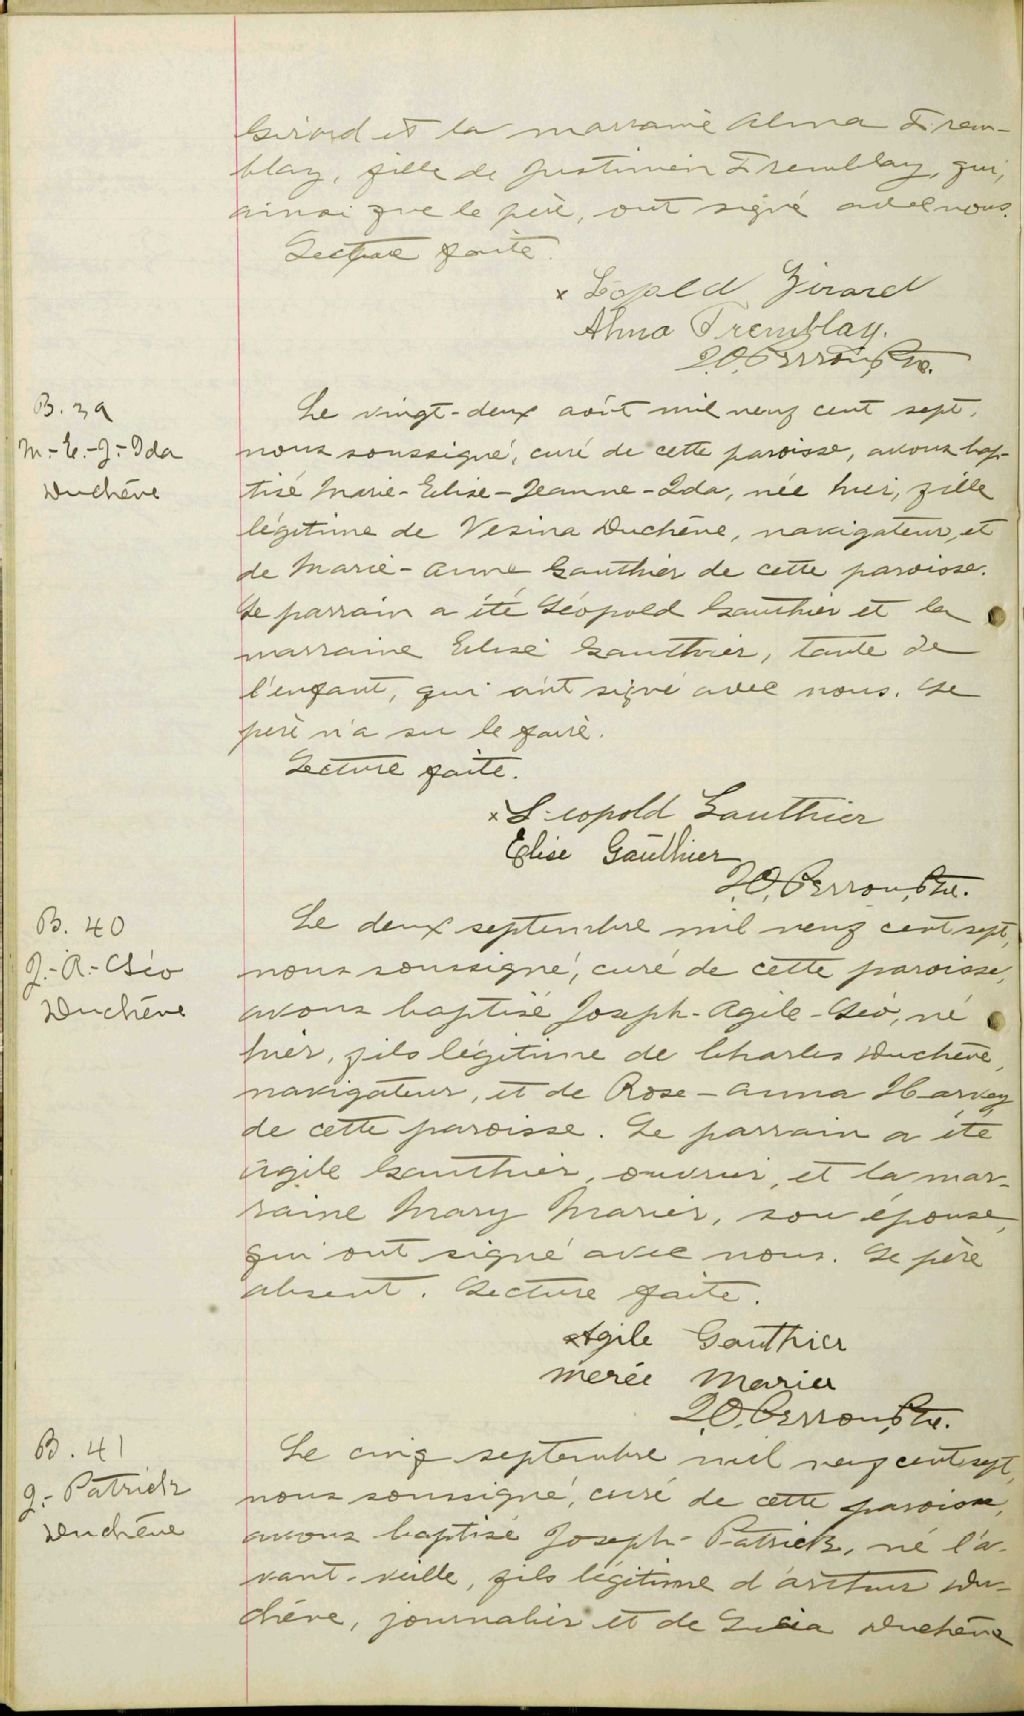 Girard et la marraine Alma Trem-
blay, fille de Justinien Tremblay, qui,
ainsi que le père, ont signé avec nous.
Lecture faite.
x Léopold Girard
Alma Tremblay.
J.O. Perron, Ptre.
B. 39
M.-E.-J.-Ida
Duchêne
Le vingt-deux août mil neuf cent sept,
nous soussigné, curé de cette paroisse, avons bap-
tisé Marie-Elise-Jeanne-Ida, née hier, fille
légitime de Vesina Duchêne, navigateur, et
de Marie-Anne Gauthier de cette paroisse.
Le parrain a été Léopold Gauthier et la
marraine Elise Gauthier, tante de
l'enfant, qui ont signé avec nous. Le
père n'a su le faire.
Lecture faite.
x Leopold Gauthier
Elise Gauthier
J.O. Perron, Ptre.
B. 40
J.-A.-Léo
Duchêne
Le deux septembre mil neuf cent sept,
nous soussigné, curé de cette paroisse,
avons baptisé Joseph-Agile-Léo, né
hier, fils légitime de Charles Duchêne,
navigateur, et de Rose-Anna Harvey
de cette paroisse. Le parrain a été
Agile Gauthier, ouvrier, et la mar-
raine Mary Marier, son épouse,
qui ont signé avec nous. Le père
absent. Lecture faite.
Agile Gauthier
Merée Marier
J.O. Perron, Ptre.
B. 41
J.-Patrick
Duchêne
Le cinq septembre mil neuf cent sept,
nous soussigné, curé de cette paroisse,
avons baptisé Joseph-Patrick, né l'a-
vant-veille, fils légitime d'Arthur Du-
chêne, journalier et de Duchêne